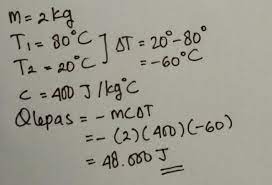 m = 2 kg
T1 = 80°C ] ΔT = 20° - 80°
T2 = 20°C = -60°C
c = 400 J/kg°C
Qlepas = - mcΔT
= - (2)(400)(-60)
= 48.000 J